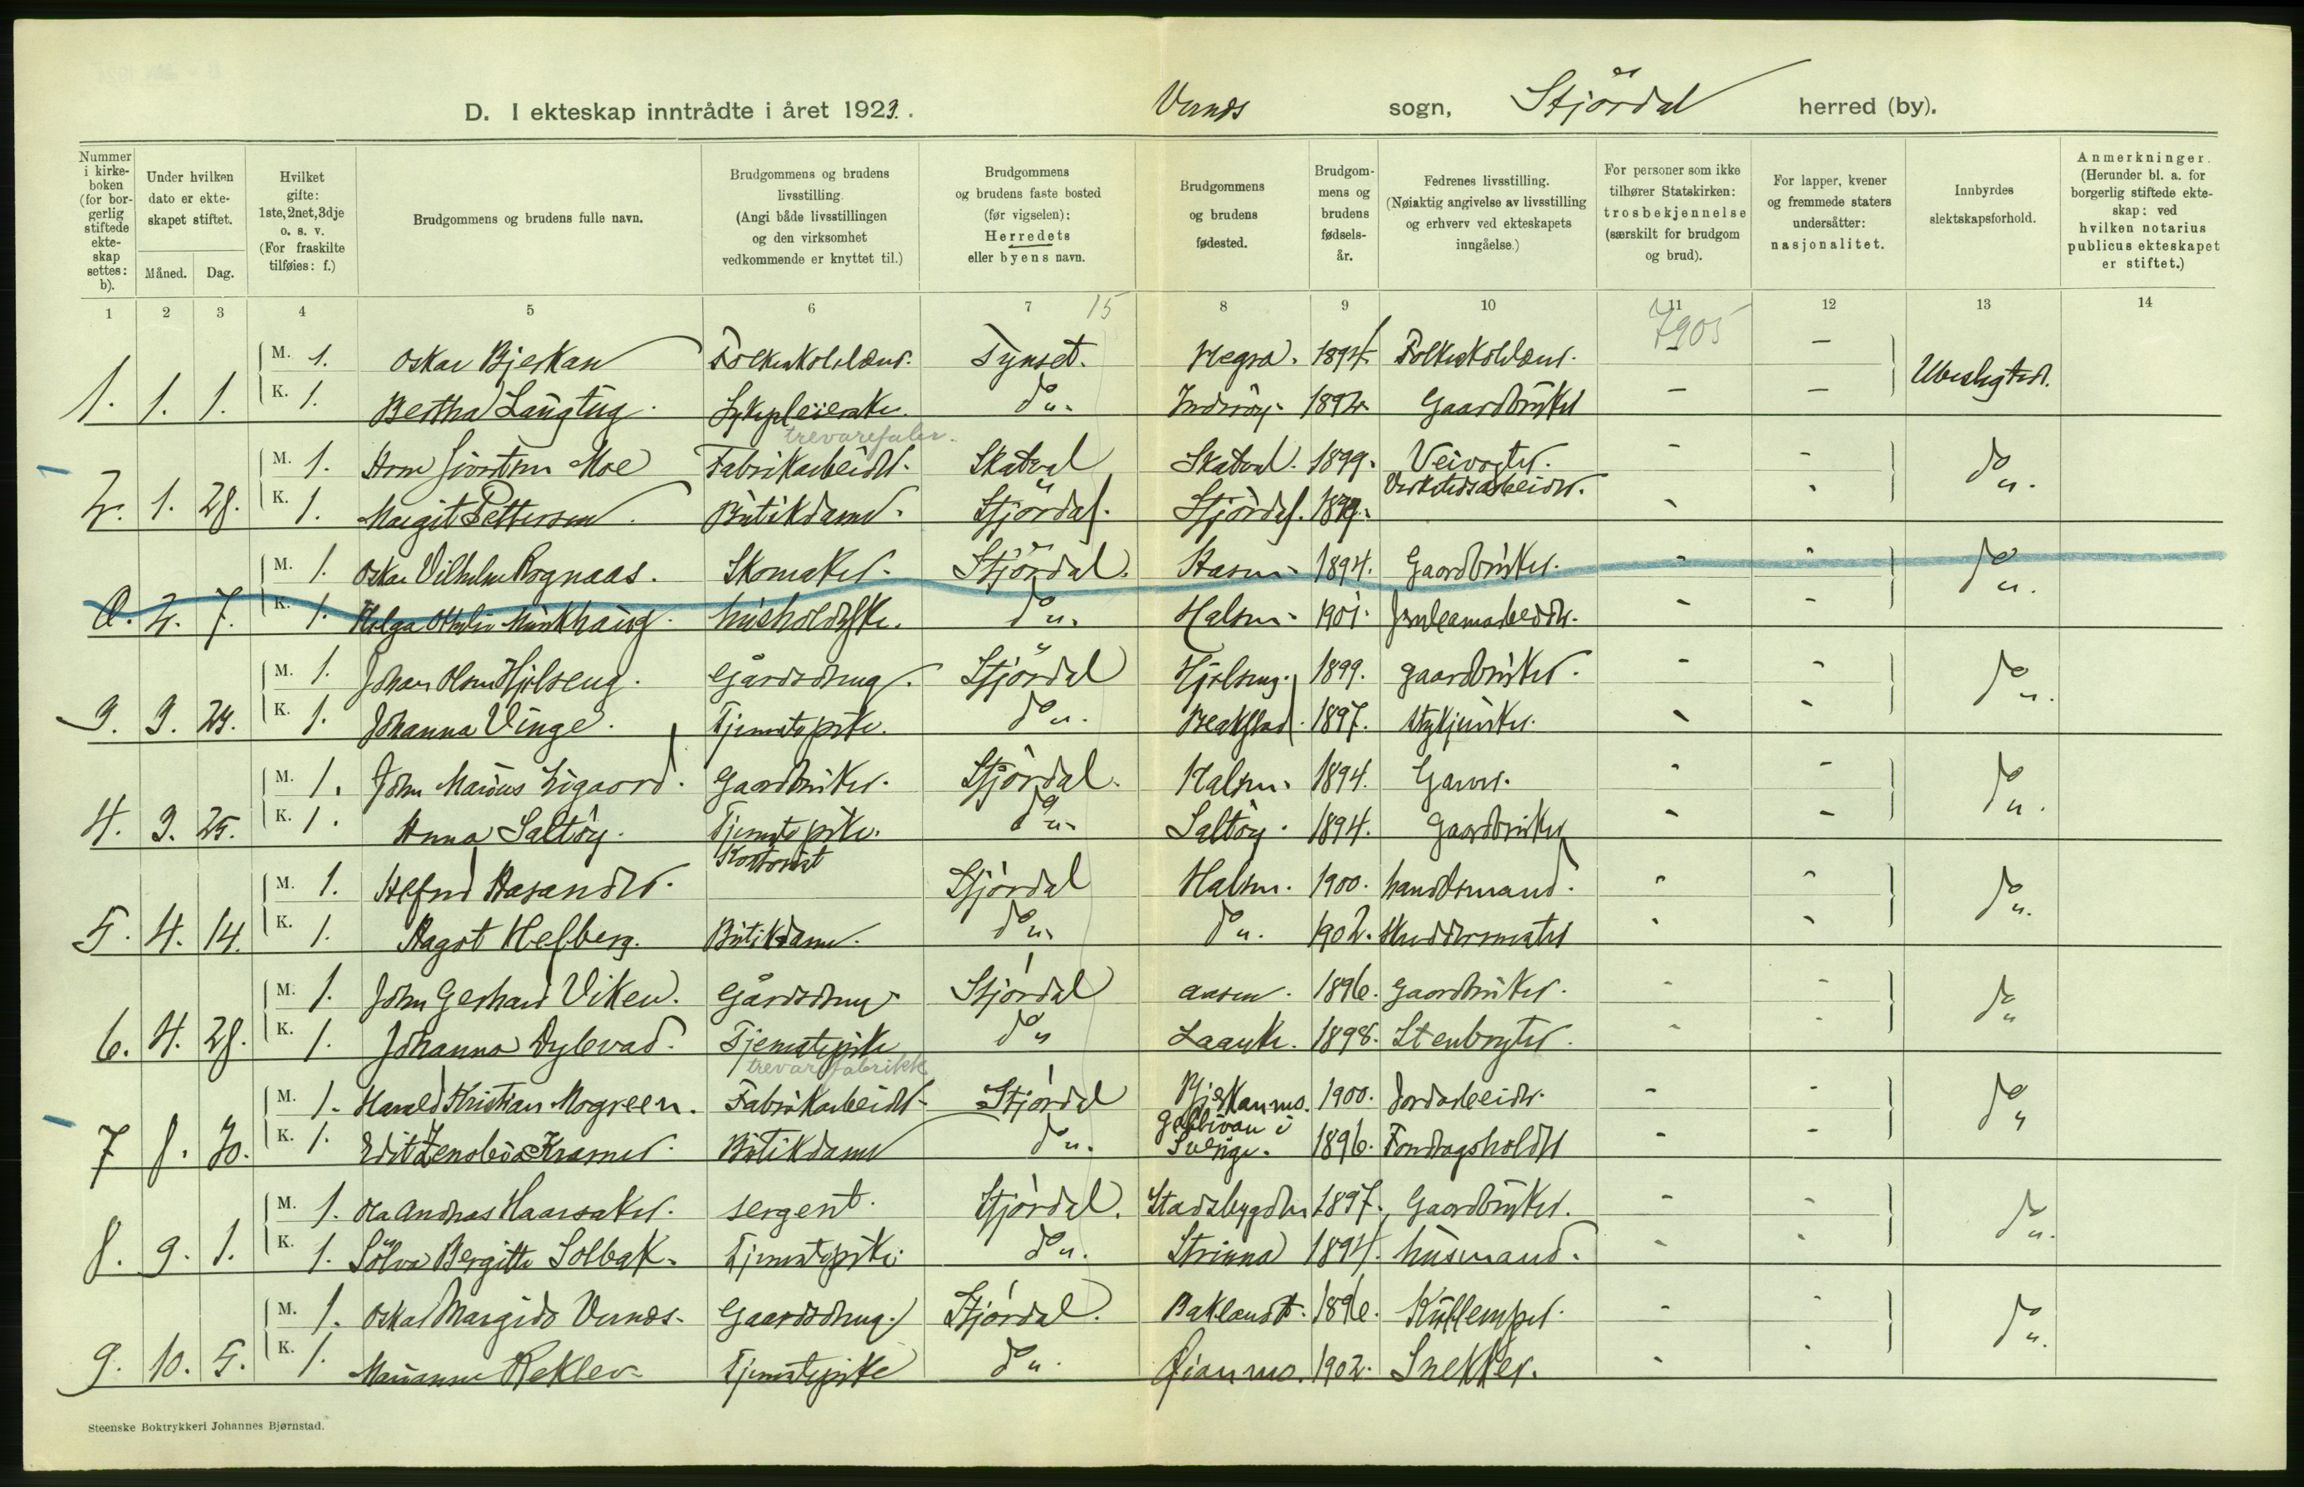 D. I ekteskap inntrådte i året 1923. Vernes sogn, Stjördal herred (by).
Nummer i kirkeboken (for borgerlig stiftede ekteskap settes: b).
Under hvilken dato er ekteskapet stiftet.
Måned. Dag.
Hvilket gifte: 1ste, 2net, 3dje o. s. v. (For fraskilte tilføies: f.)
Brudgommens og brudens fulle navn.
Brudgommens og brudens livsstilling. (Angi både livsstillingen og den virksomhet vedkommende er knyttet til.)
Brudgommens og brudens faste bosted (før vigselen): Herredets eller byens navn.
Brudgommens og brudens fødested.
Brudgommens og brudens fødselsår.
Fedrenes livsstilling. (Nøiaktig angivelse av livsstilling og erhverv ved ekteskapets inngåelse.)
For personer som ikke tilhører Statskirken: trosbekjennelse (særskilt for brudgom og brud).
For lapper, kvener og fremmede staters undersåtter: nasjonalitet.
Innbyrdes slektskapsforhold.
Anmerkninger. (Herunder bl. a. for borgerlig stiftede ekteskap: ved hvilken notarius publicus ekteskapet er stiftet.)
1 2 3 4 5 6 7 15 8 9 10 11 12 13 14
7905
M. 1. Oskar Bjerkan Folkeskolelær. Tynset. Hegra. 1894. Folkeskolelær. - -
1. 1. 1. K. 1. Bertha Langtug. Sykepleierske. do. Inderöy. 1892. Gaardbruker - - Ubeslegted.
trevarefabr.
M. 1. Moe Fabrikarbeider. Skatval Skatval. 1899. Veivogter. - - do.
2. 1. 28. K. 1. Margit Pettersen. Butikdame. Stjördal. Stjördal. 1899. Verkstedsarbeider.
M. 1. Oskar Vilhelm Rognaas. Skomaker. Stjördal. 1894. Gaardbruker. - - do.
0. 2. 7. K. 1. Helga Othilie Munkhaug. husholderske. do. Halsen. 1901. - -
M. 1. Johan Olsen Hjelseng. Gårdsdreng. Stjördal Hjelseng. 1899. gaardbruker. - - do.
3. 3. 24. K. 1. Johanna Vinge. Tjenestepike. do. 1897. - -
M. 1. John Marius Ligaard. Gaardbruker. Stjördal. Halsen. 1894. Garver. - - do.
4. 3. 25. K. 1. Anna Saltöy. Tjenestepike. do. Saltöy. 1894. Gaardbruker - -
Kontorist
M. 1. Stjördal Halsen. 1900. handelsmand. - - do.
5. 4. 14. K. 1. Aagot Helberg. Butikdame. do. do. 1902. Skreddermester - -
M. 1. John Gerhard Viken. Gårdsdreng Stjördal 1896. Gaardbruker. - - do
6. 4. 28. K. 1. Johanna Dylevad. Tjenestepike do Laanke. 1898. - -
trevarefabrikk
M. 1. Harald Kristian Mogreen. Fabrikarbeider Stjördal Bjerkanmo. 1900. Jordarbeider. - - do
7 8. 20. K. 1. Edit Zenobia Kramer. Butikdame do. Gellivare i Sverige. 1896. Fondragsholder - -
M. 1. Ola Andreas Haarsaker. sergent. Stjördal. Stadsbygden 1897. Gaardbruker. - - do.
8. 9. 1. K. 1. Sölva Bergitte Solbak. Tjenestepike. do. Strinna 1894. husmand. - -
M. 1. Oskar Margido Vernes. Gaardsdreng. Stjördal. Baklandt. 1896. - - do.
9. 10. 5. K. 1. Marianne Reklev Tjenestepike do. Öianmo. 1902. Snekker. - -
Steenske Boktrykkeri Johannes Bjørnstad.